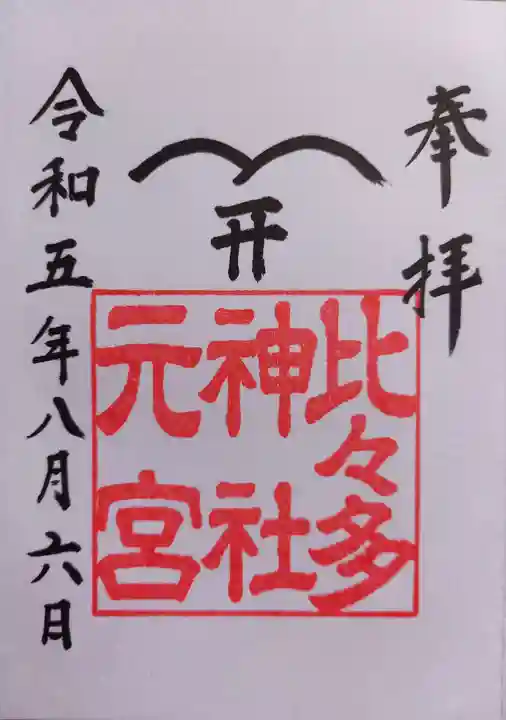 奉拝
比々多
神社
元宮
令和五年八月六日